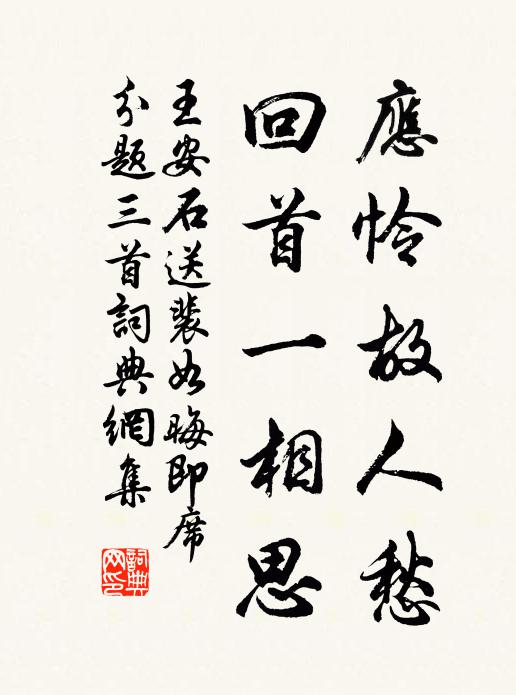 應憐故人愁
回首一相思
王安石送裴如晦即席
分題三首詞典網集
詞典
网印